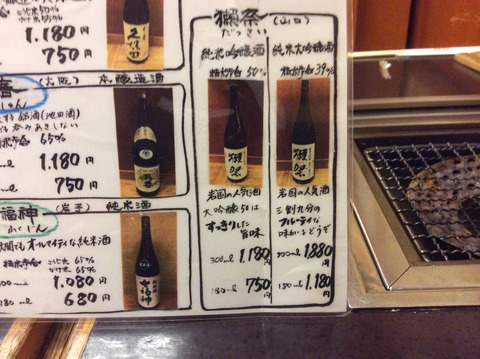 1,180円
750円
獺祭(山口)
だっさい
純米吟醸酒
精米歩合50%
純米大吟醸酒
精米歩合39%
獺祭
獺祭
岩国の人気酒
大吟醸50は
すっきりした
旨味
300ml 1,180円
180ml 750円
岩国の人気酒
三割九分の
フルーティな
味わいをどうぞ
300ml 1,880円
180ml 1,180円
春(大阪) 本醸造酒
しゅん
銘酒(池田酒)
呑みあきしない
65%
1,180円
750円
福神(岩手) 純米酒
ふくじん
オールマイティな純米酒
65%
65%
1,080円
180ml 680円